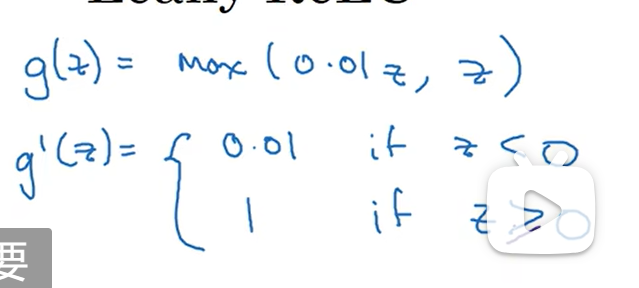 Leaky ReLU
g(z) = max(0.01z, z)
g'(z) = { 0.01 if z < 0
1 if z > 0
要